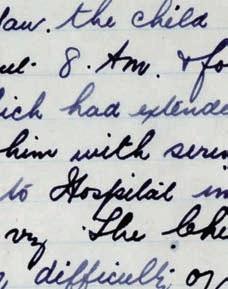 law. the child
8. Am. & fo
ich had extende
him with seru
to Hospital im
The Che
difficulty